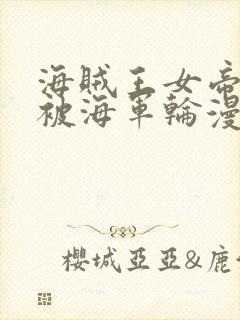 海賊王女帝
被海軍輪漫
櫻城亞亞&鹿